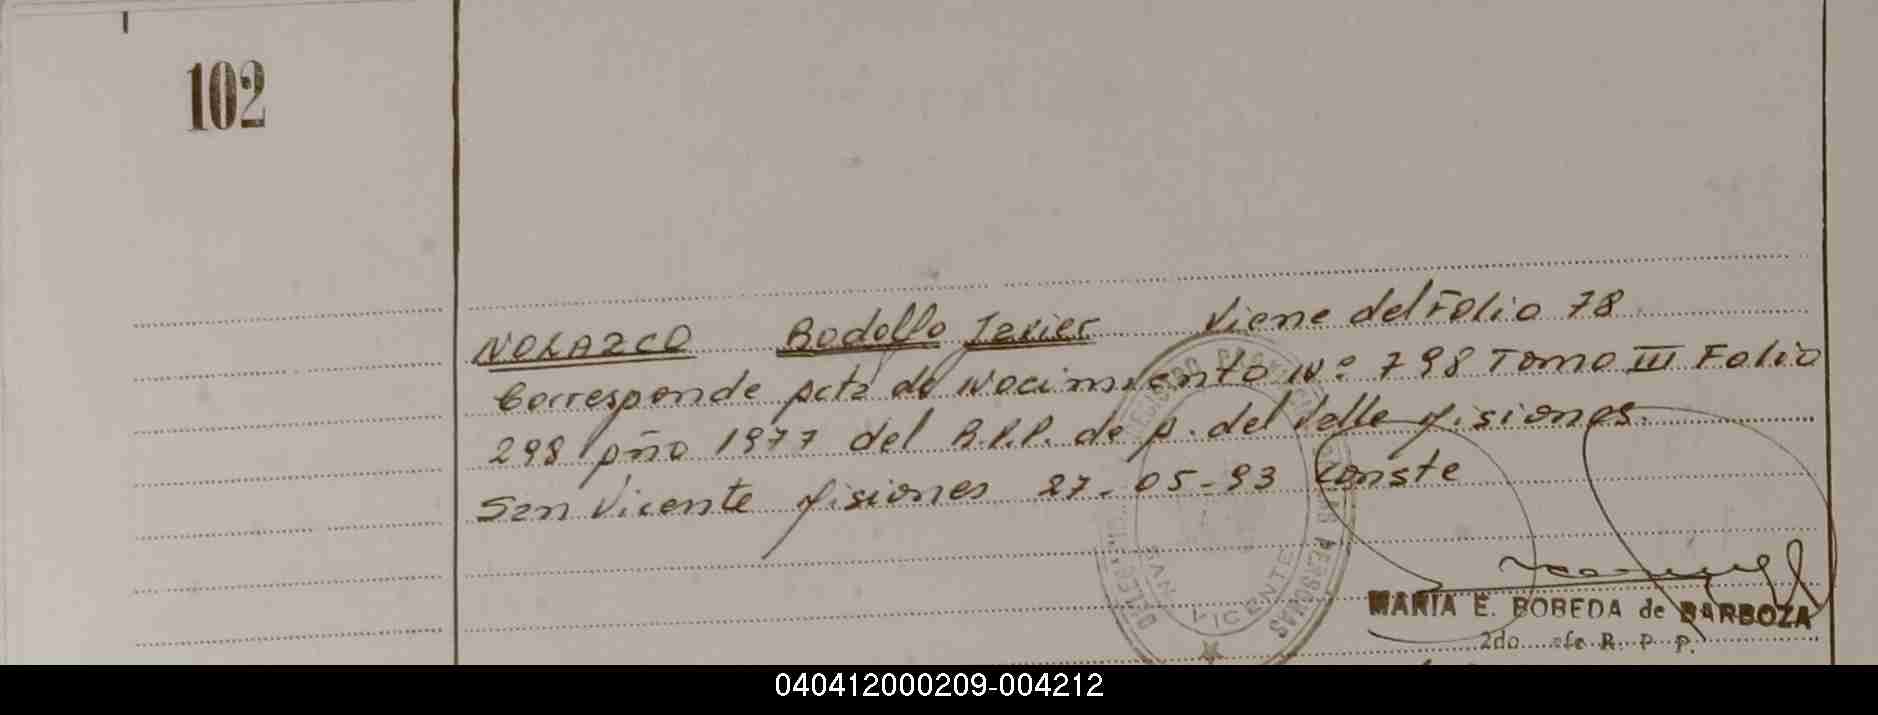 102
NOLAZCO Rodolfo Javier Viene del Folio 78
Corresponde Acta de Nacimiento Nº 798 Tomo III Folio
298 Año 1977 del R.P.P. de A. del Valle Misiones.
San Vicente Misiones 27-05-93 Conste
REGISTRO PROVINCIAL DE LAS PERSONAS
SAN VICENTE
MARIA E. BOBEDA de BARBOZA
2do. Jefe R. P. P.
040412000209-004212